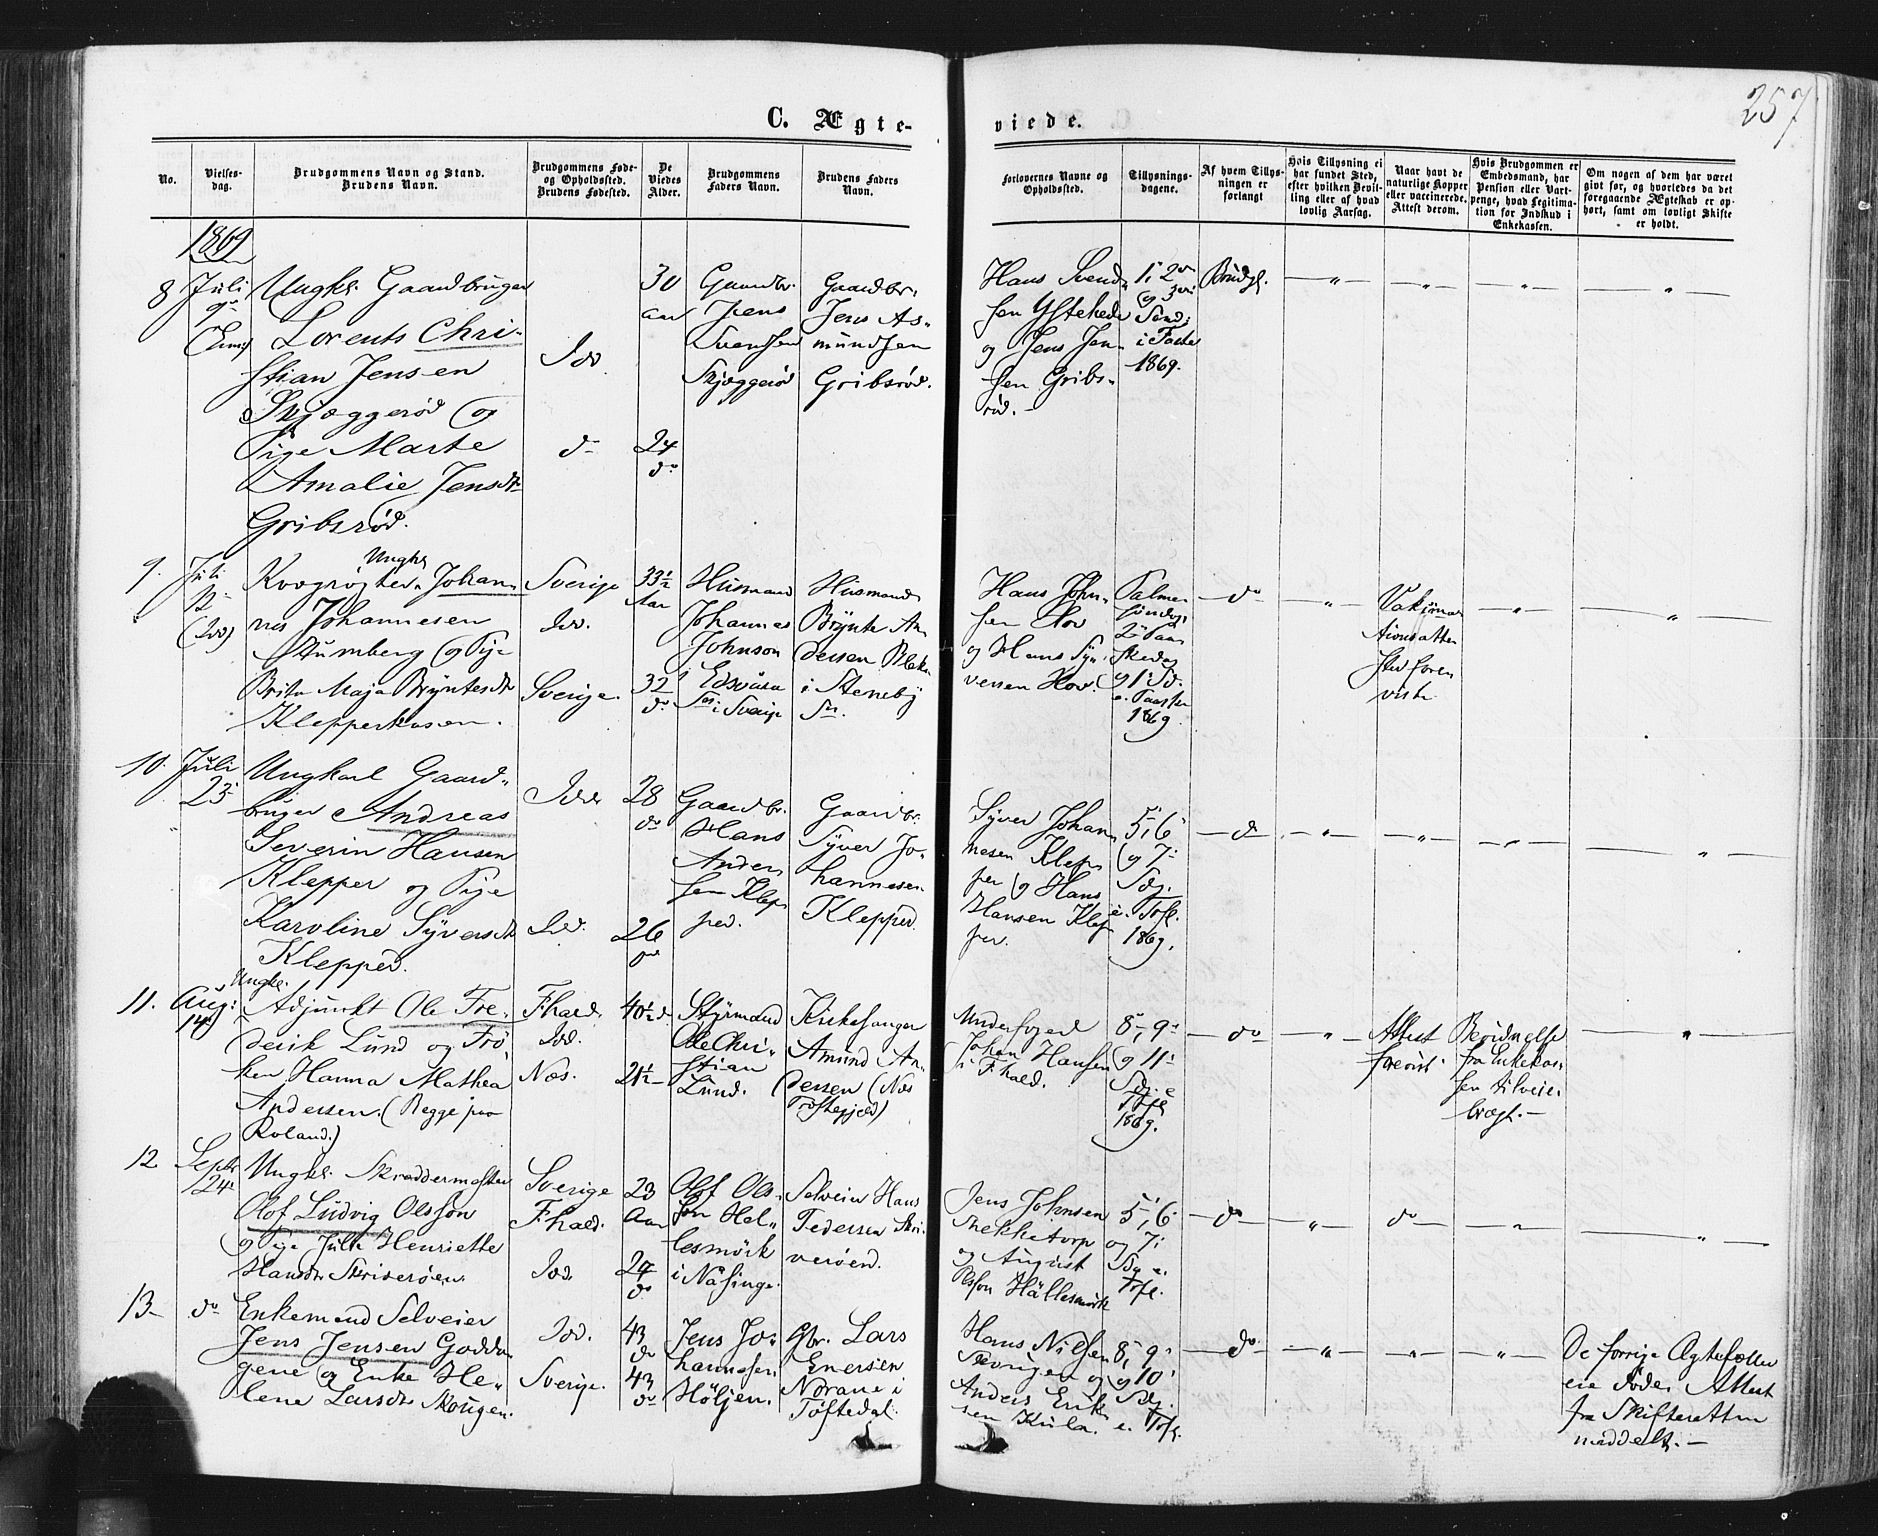 257
C. Ægte-
viede.
No.
Vielses-
dag.
Brudgommens Navn og Stand.
Brudens Navn.
Brudgommens Føde-
og Opholdssted.
Brudens Fødested.
De
Viedes
Alder.
Brudgommens
Faders Navn.
Brudens Faders
Navn.
Forlovernes Navne og
Opholdssted.
Tillysnings-
dagene.
Af hvem Tillys-
ningen er
forlangt
Hvis Tillysning ei
har fundet Sted,
efter hvilken Bevil-
ling eller af hvad
lovlig Aarsag.
Naar havt de
naturlige Kopper
eller vaccinerede.
Attest derom.
Hvis Brudgommen er
Embedsmand, har
Pension eller Vart-
penge, hvad Legitima-
tion for Indskud i
Enkekassen.
Om nogen af dem har været
gift før, og hvorledes da det
foregaaende Ægteskab er op-
hørt, samt om lovligt Skifte
er holdt.
1869
8
Juli
9
Ungk. Gaardbruger
Lorents Chri-
stian Jensen
Skjæggerød og
Pige Marte
Amalie Jensdt
Gribsrød.
Idd.
d-
30
aar
24
do
Gaardbr.
Jens
Svendsen
Skjæggerød
Gaardbr.
Jens As-
mundsen
Gribsrød.
Hans Svend-
sen Ystehede
og Jens Jen-
sen Gribs-
rød.-
1, 2en
og 3die
Sønd.
i Faste
1869.
Brudg.
— " —
— " —
— " —
— " —
9.
Juli
12
(Idd)
Ungk.
Kvægrøgter Johan-
nes Johannesen
Stumberg og Pige
Brita Maja Brynte​sdt
Klepperkasen.
Sverige
Idd.
Sverige.
33½
Aar
32
do
Husmand
Johannes
Johnson
i Edsvära
Sn i Sverige
Husmand
Brynte An-
dersen Bleke
i Steneby
Sn.
Hans John-
sen Hov
og Hans Syn-
versen Hov.
Palme
Søndag,
2 Paa-
skedag
og 1 Sd.
e. Paaske
1869.
— do —
— " —
Vakcina-
tionsatte-
ster fore-
viste.
— " —
— " —
10.
Juli
23
Ungkarl Gaard-
bruger Andreas
Severin Hansen
Klepper og Pige
Karoline Syversdt
Klepper.
Idd.
Idd.
28
do
26
do
Gaardbr.
Hans
Ander-
sen Klep-
per.
Gaardbr.
Syver Jo-
hannesen
Klepper.
Syver Johan-
nesen Klep-
per og Hans
Hansen Klep-
per.
5, 6
og 7
Sdg.
e. Trfk.
1869.
— do —
— " —
— " —
— " —
— " —
11.
Aug:
14
Ungk.
Adjunkt Ole Fre-
derik Lund og Frø-
ken Hanna Mathea
Andersen. (Begge paa
Roland.)
Fhald.
Idd.
Næs.
40½ d.
21½ —
Styrmand
Ole Chri-
stian
Lund.
Kirkesanger
Amund An-
dersen (Næs
Præstegjeld)
Underfoged
Johan Hansen
i Fhald.
8, 9
og 11
Sdg. e
Trfk
1869.
— do —
— " —
Attest
forevist.
Bevidnelse
fra Enkekas-
sen tilveie-
bragt.—
— " —
12
Septbr
24.
Ungk. Skræddermester
Olof Ludvig Olsson
og Pige Julie Henriette
Hansdt. Skriverøen.
Sverige
Fhald.
Idd.
23
Aar
24
do
Olof Ols-
son Hel-
lesmörk
i Nåsinge.
Selveier Hans
Pedersen Skri-
verøen.
Jens Johnsen
Stekketorp
og August
Olsson Hällesmörk
5, 6
og 7
Sdg e.
Trfk.
— do —
— " —
— do —
— " —
— " —
13-
do
Enkemand Selveier
Jens Jensen Goddu-
gene og Enke He-
lene Larsdt. Skougen.
Idd.
Sverige.
43
do
43
do
Jens Jo-
hannesen
Höljen.
Gbr. Lars
Enersen
Norane i
Töftedal.
Hans Nilsen
Skougen og
Anders Erik-
sen Kula.
8, 9
og 10
Sdg.
e. Trfk.
— do —
— " —
— " —
— " —
De forrige Ægtefæller
ere døde. Attest
fra Skifteretten
meddelt.—